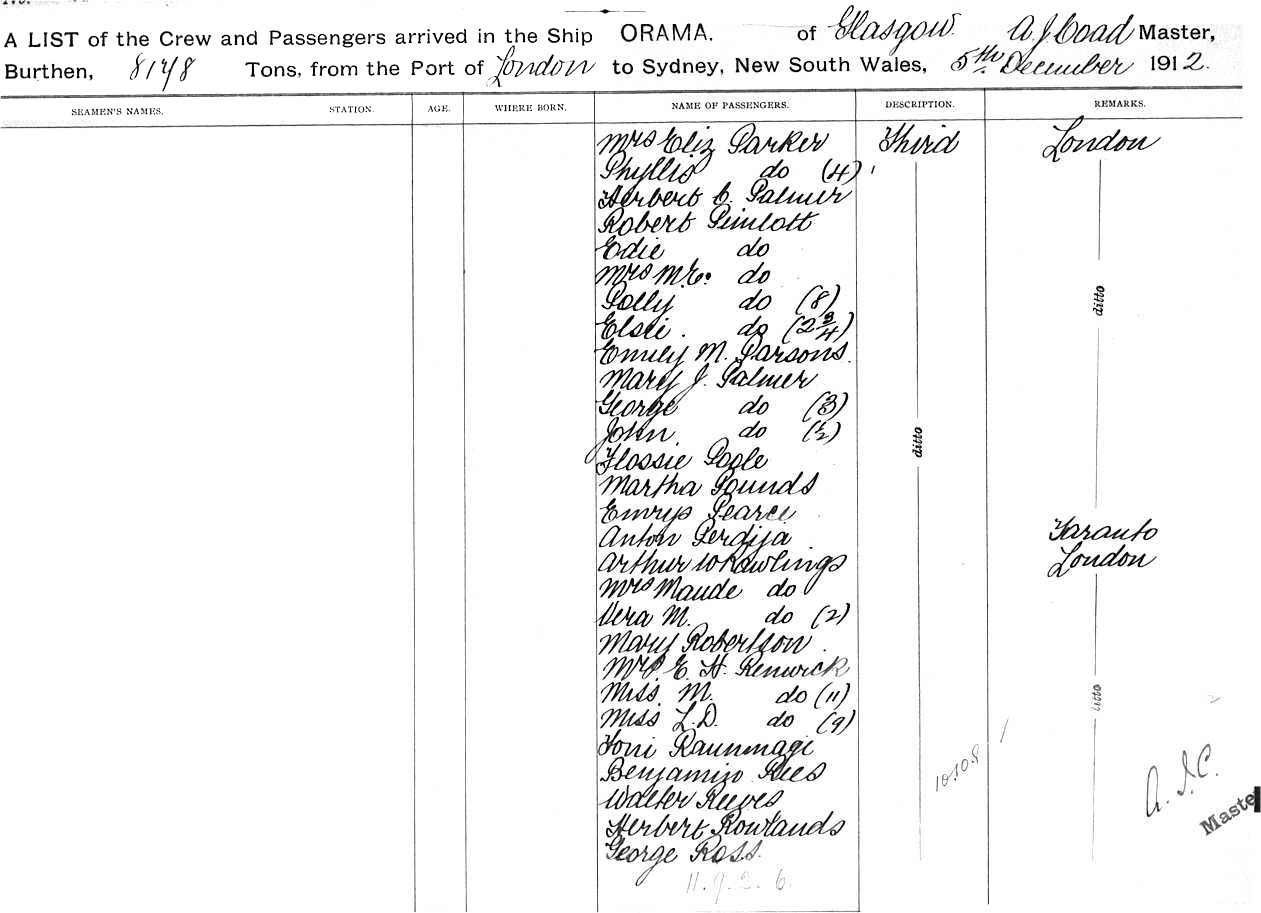 A LIST of the Crew and Passengers arrived in the Ship ORAMA. of Glasgow A J Coad Master,
Burthen, 8148 Tons, from the Port of London to Sydney, New South Wales, 5th December 1912.
SEAMEN'S NAMES. STATION. AGE. WHERE BORN. NAME OF PASSENGERS. DESCRIPTION. REMARKS.
Mrs Eliz Parker Third London
Phyllis do (4)
Herbert C. Palmer
Robert Pimlott
Edie do
Mrs M.E. do
Polly do (8)
ditto
Elsie do (2 3/4)
Emily M. Parsons.
Mary J. Palmer
George do (3)
John do (1/2)
ditto
Flossie Poole
Martha Pounds
Emrys Pearce
Anton Perdija Taranto
Arthur W Rawlings London
Mrs Maude do
Vera M. do (2)
Mary Robertson
Mrs. E. H. Renwick
Miss. M. do (11)
ditto
Miss L.D. do (9)
Toni Raunmagi
Benjamin Rees
10.10.8
Walter Reeves
A. J. C.
Herbert Rowlands
Maste
George Ross.
11. 9. 2. 6.